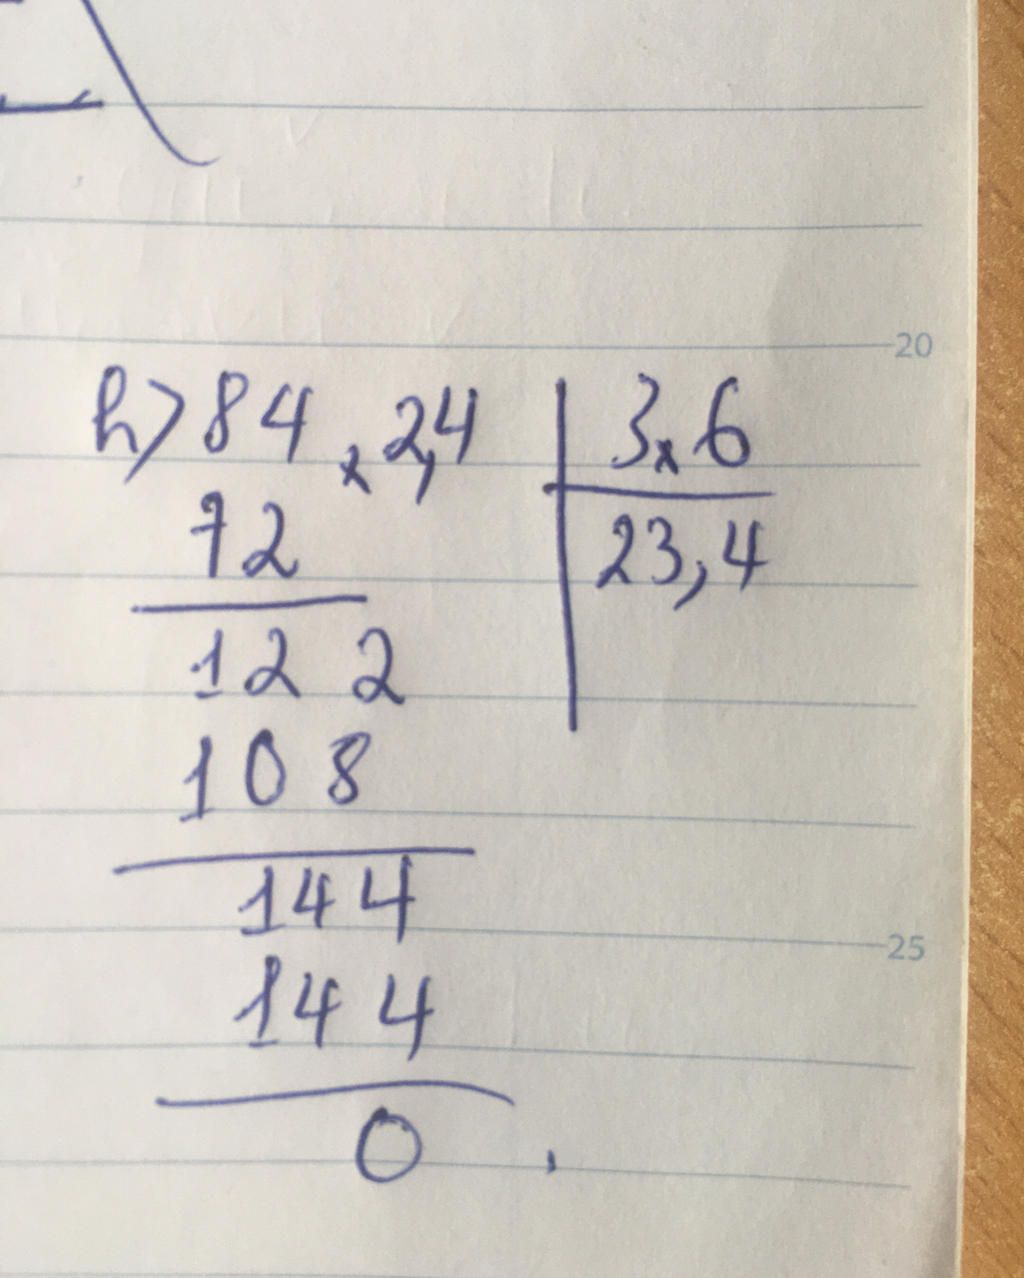 h) 84 × 2,4 | 3 × 6
72 | 23,4
122
108
144
144
0 .
20
25